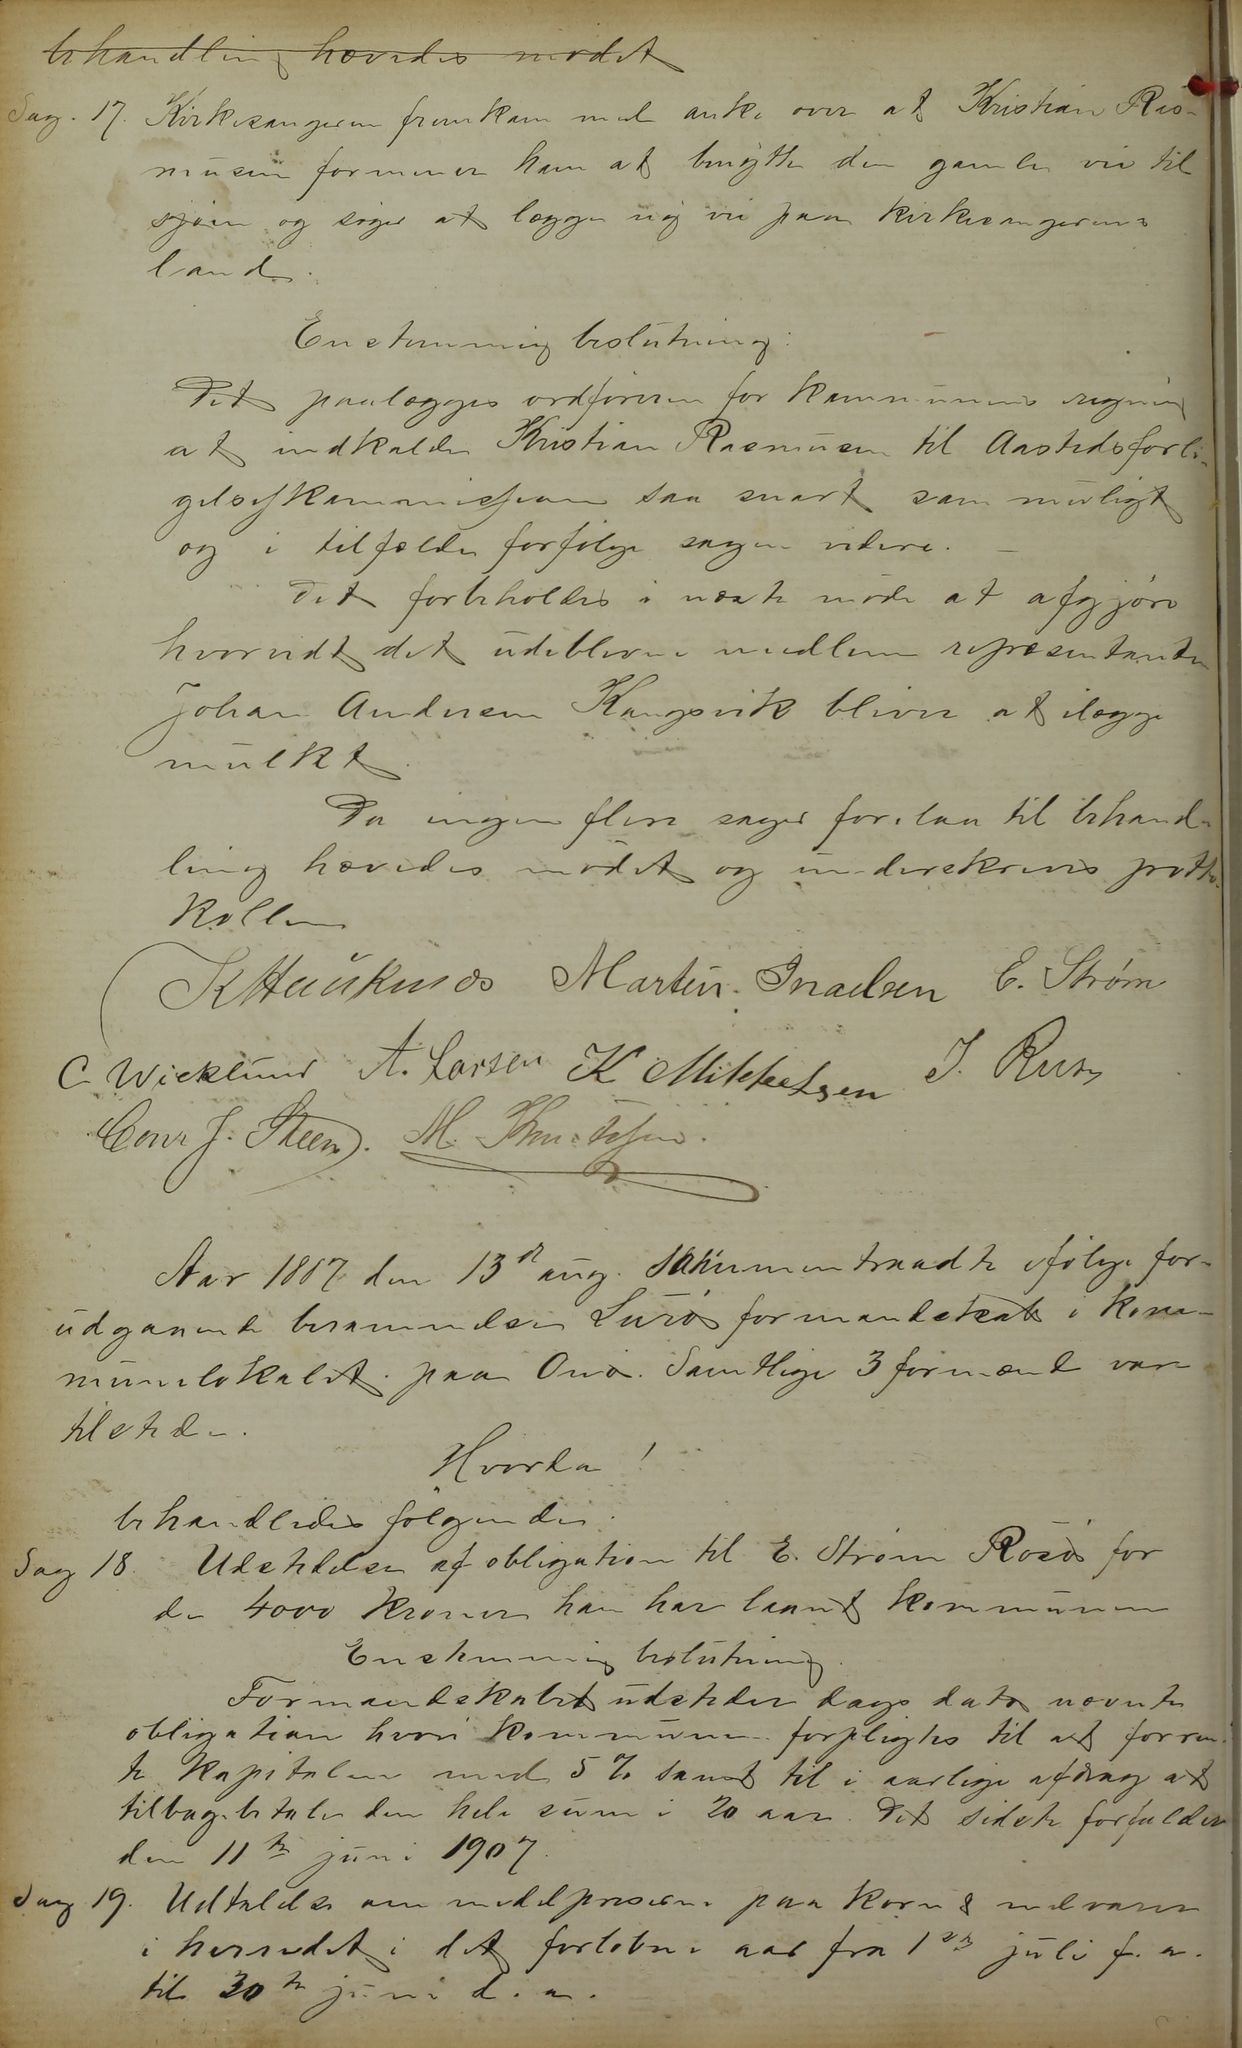 behandling hævedes mødet
Sag. 17. Kirkesangeren fremkom med anke over at Kristian Ras-
musen formener ham at benytte den gamle vei til
sjøen og søger at lægge sig vei paa kirkesangerens
land.
Enstemmig beslutning:
Det paalægges ordføreren for kommunens regning
at indkalde Kristian Rasmusen til Aastedsforli-
gelseskommissionen saa snart som muligt
og i tilfælde forfølge sagen videre. —
Det forbeholdes i næste møde at afgjøre
hvorvidt det udeblevne medlem repræsentanten
Johan Andersen Kangsvik bliver at ilægge
mulkt.
Da ingen flere sager forelaa til behand-
ling hævedes mødet og underskreves protto-
kollen
K Haukenæs Martin. Israelsen E. Strøm
C Wicklund A. Larsen K Mikkelsen J.
Conr J. Steen. M.
Aar 1887 den 13de aug. sammentraadte ifølge for-
udgaaende berammelse Lurø formandskab i kom-
munelokalet paa Onø. Samtlige 3 formænd var
tilstede.
Hvorda!
behandledes følgende:
Sag 18. Udstedelse af obligation til E. Strøm Rosø for
de 4000 kroner han har laant kommunen
Enstemmig beslutning.
Formandskabet udsteder dags dato nævnte
obligation hvori kommunen forpligtes til at forren-
te kapitalen med 5 % samt til i aarlige afdrag at
tilbagebetale den hele sum i 20 aar. Det sidste forfalder
den 11te juni 1907.
Sag 19. Udtalelse om middelpriserne paa korn & melvarer
i herredet i det forløbne aar fra 1ste juli f. a.
til 30te juni d. a.